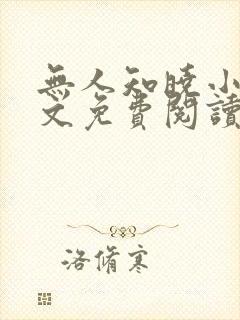 無人知曉小
文免費閱讀
洛脩寒